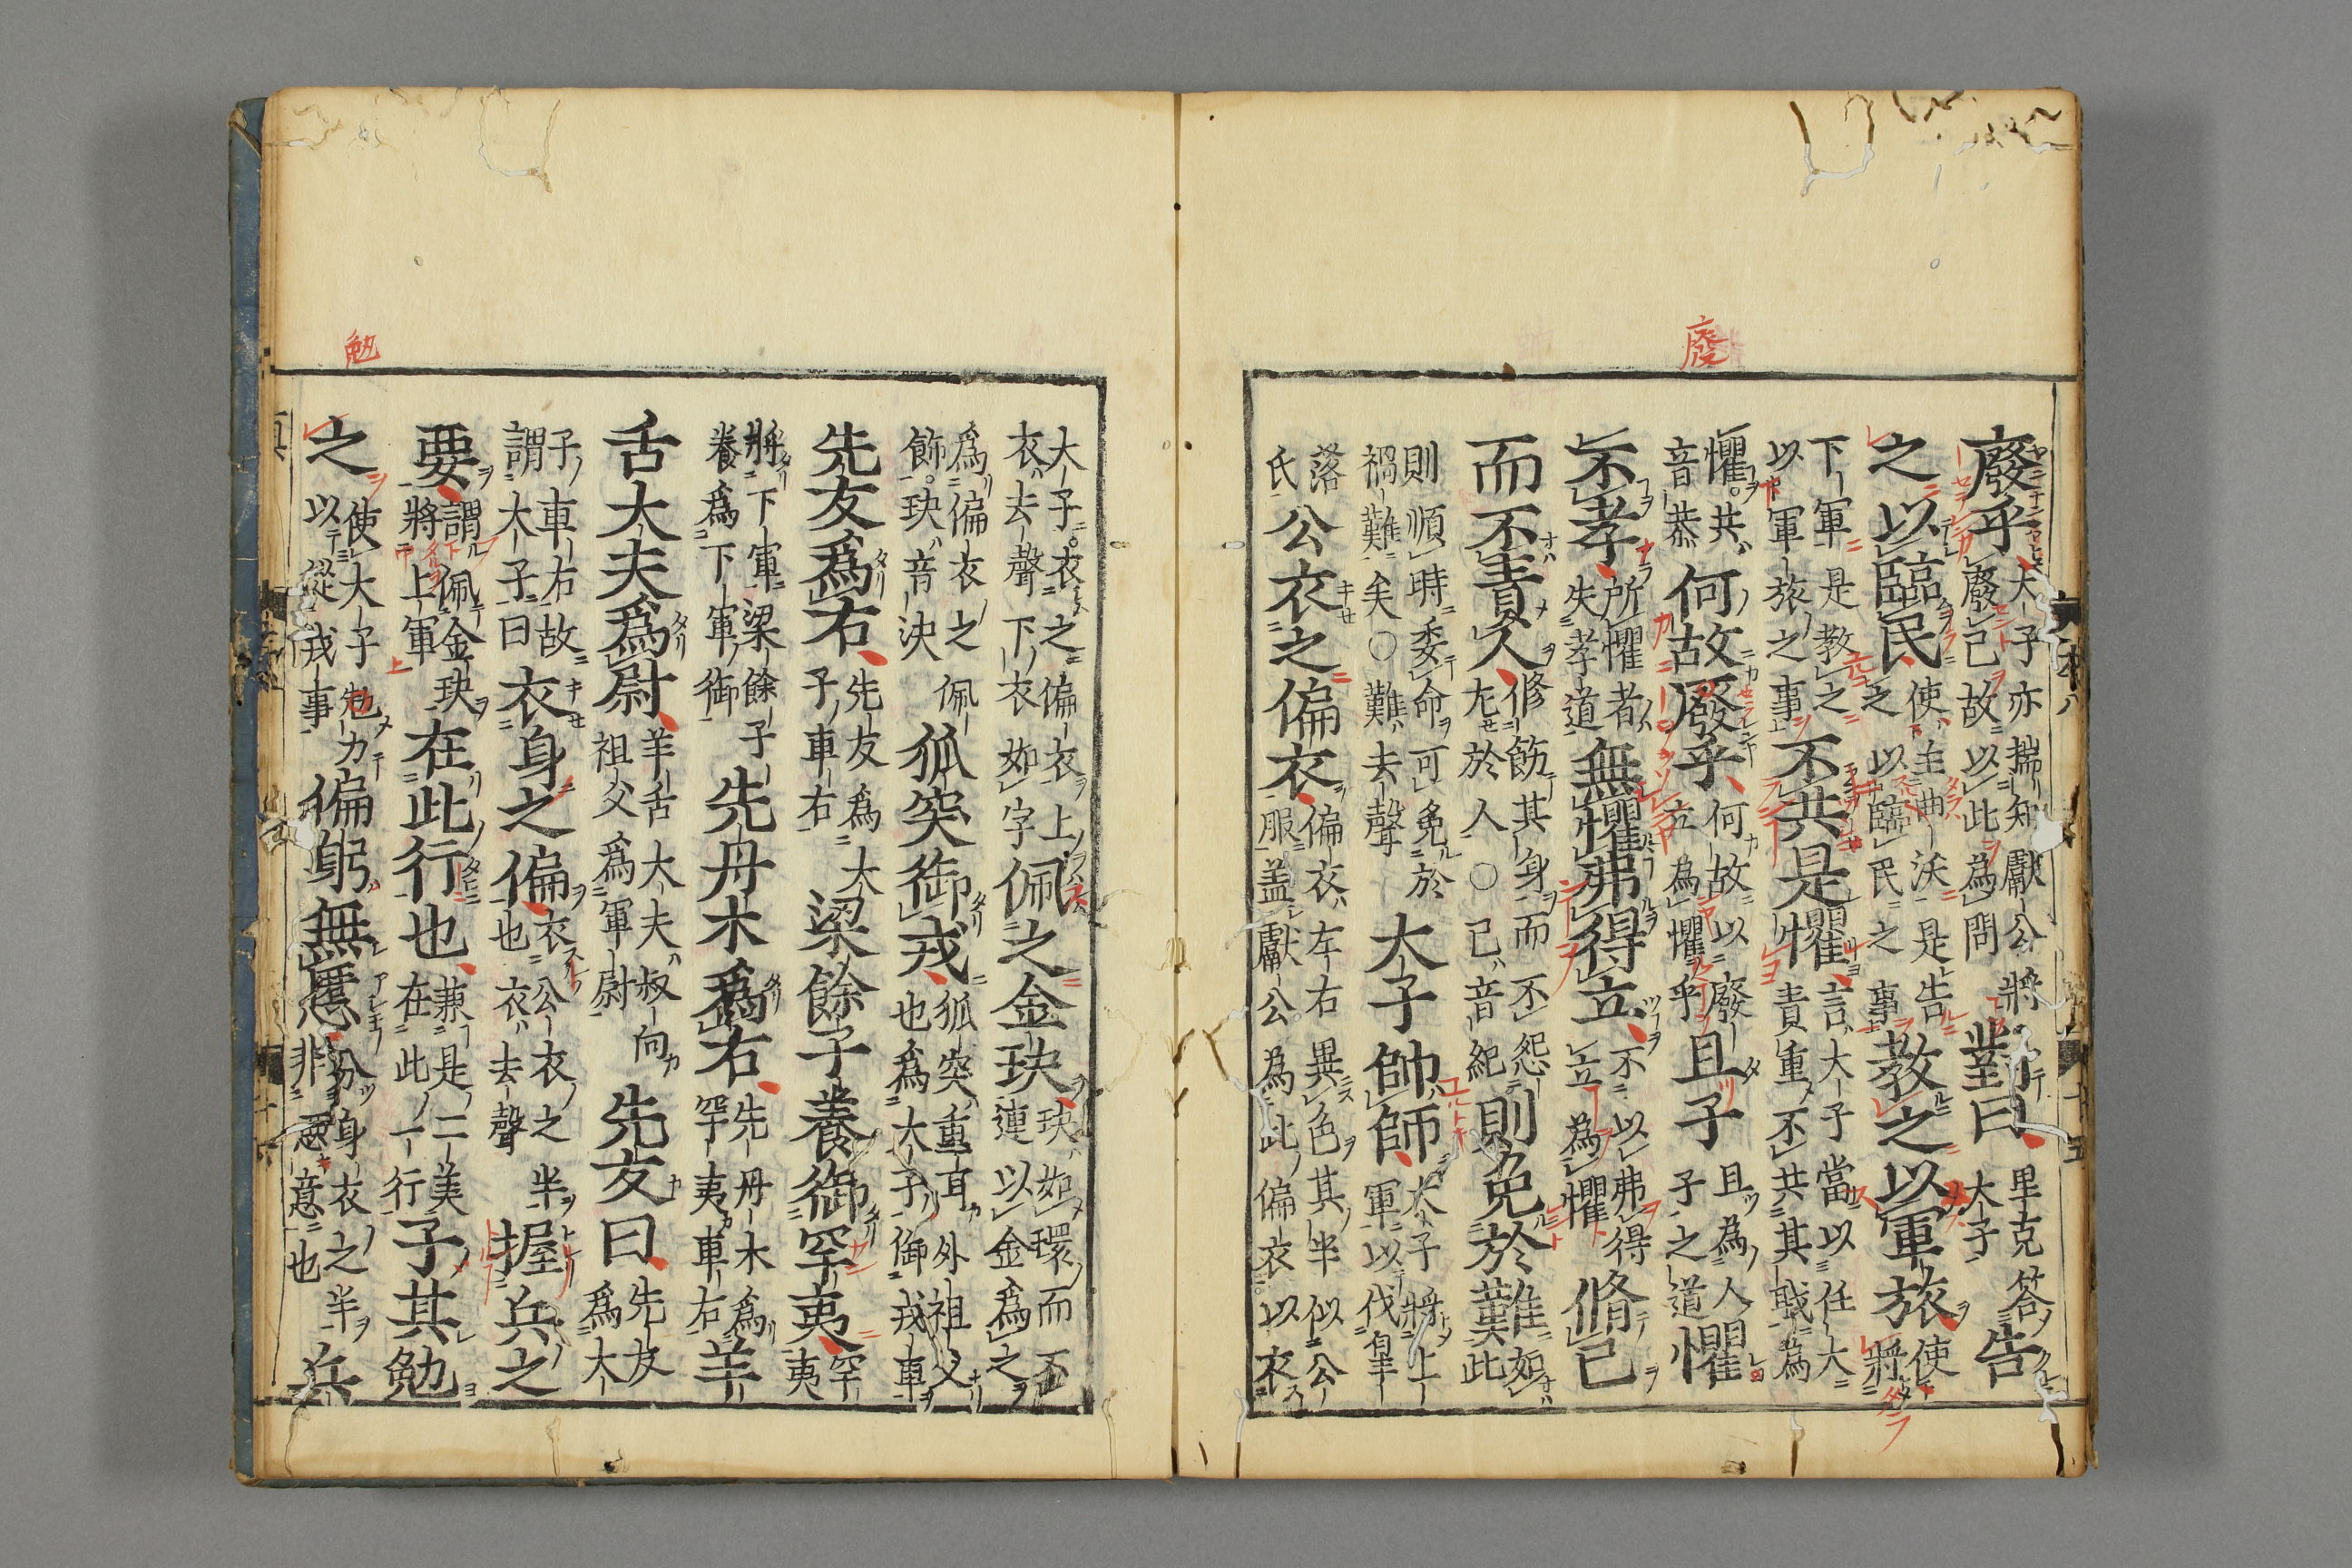 廢
廢乎大子亦揣知獻公將廢己故以此為問對曰里克答大子告
之以臨民使主曲沃是告之以臨民之事教之以軍旅使將
下軍是教之以軍旅之事不共是懼言大子當以任大責重不共其職為
懼共音恭何故廢乎何故以廢立為懼乎且子且為人子之道懼
不孝所懼者失孝道無懼弗得立不以弗得立為懼脩己
而不責人修飭其身而不怨尤於人○己音紀則免於難如此
則順時委命可免於禍難矣○難去聲大子帥師大子將上軍以伐皐
落氏公衣之偏衣偏衣左右異色其半似公服盖獻公為此偏衣以衣
勉
大子衣之偏衣上衣去聲下衣如字佩之金玦玦如環而不連以金為之
為偏衣之佩飾玦音決狐突御戎狐突重耳外祖父也為大子御戎車
先友為右先友為大子車右梁餘子養御罕夷罕夷
將下軍梁餘子養為下軍御先丹木為右先丹木為罕夷車右羊
舌大夫為尉羊舌大夫叔向祖父為軍尉先友曰先友為大
子車右故謂大子曰衣身之偏衣公衣之半也衣去聲握兵之
要謂佩金玦將上軍在此行也兼是二美在此一行子其勉
之使大子勉力以從戎事偏躬無慝分身衣之半非惡意也兵